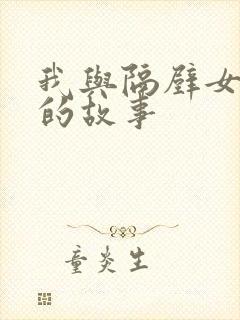 我與隔壁女
的故事
童炎生